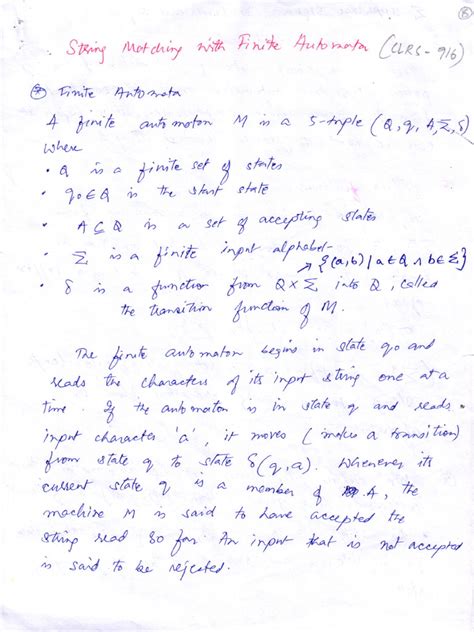 6
String Matching with Finite Automata (CLRS - 916)
* Finite Automata
A finite automaton M is a 5-tuple (Q, q, A, Σ, δ)
where
• Q is a finite set of states
• q0 ∈ Q is the start state
• A ⊆ Q is a set of accepting states
• Σ is a finite input alphabet
→ {(a,b) | a ∈ Q ∧ b ∈ Σ}
• δ is a function from Q × Σ into Q, called
the transition function of M.
The finite automaton begins in state q0 and
reads the characters of its input string one at a
time. If the automaton is in state q and reads
input character 'a', it moves (makes a transition)
from state q to state δ(q,a). Whenever its
current state q is a member of A, the
machine M is said to have accepted the
string read so far. An input that is not accepted
is said to be rejected.